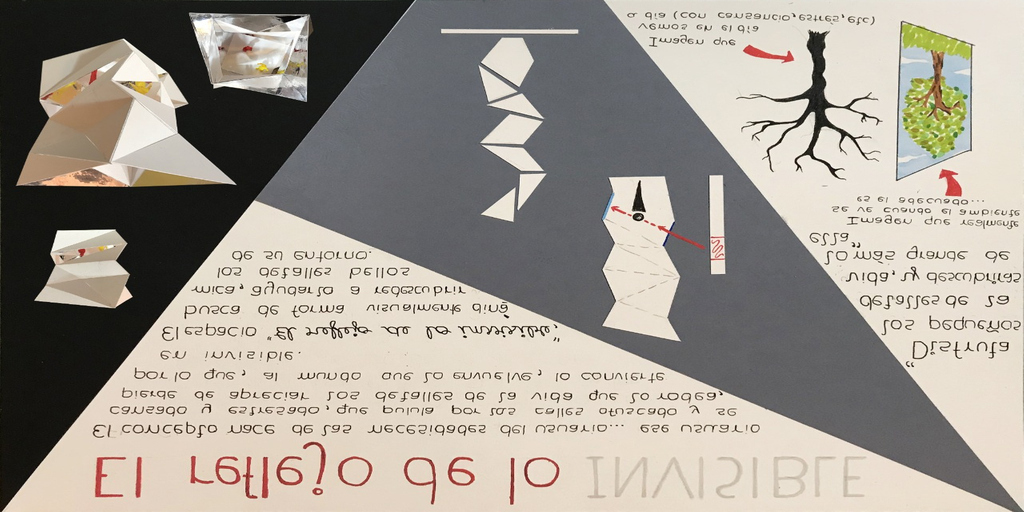 El reflejo de lo INVISIBLE
El concepto nace de las necesidades del usuario... ese usuario
cansado y estresado, que pulula por las calles ofuscado y se
pierde de apreciar los detalles de la vida que lo rodea,
por lo que, al mundo que lo envuelve, lo convierte
en invisible.
El espacio "El reflejo de lo invisible,"
busca de forma visualmente diná
mica, ayudarlo a redescubrir
los detalles bellos
de su entorno.
"Disfruta
los pequeños
detalles de la
vida, y descubriras
lo más grande de
ella"
Imagen que realmente
se ve cuando el ambiente
es el adecuado...
Imagen que
vemos en el día
a día (con cansancio, estrés, etc)